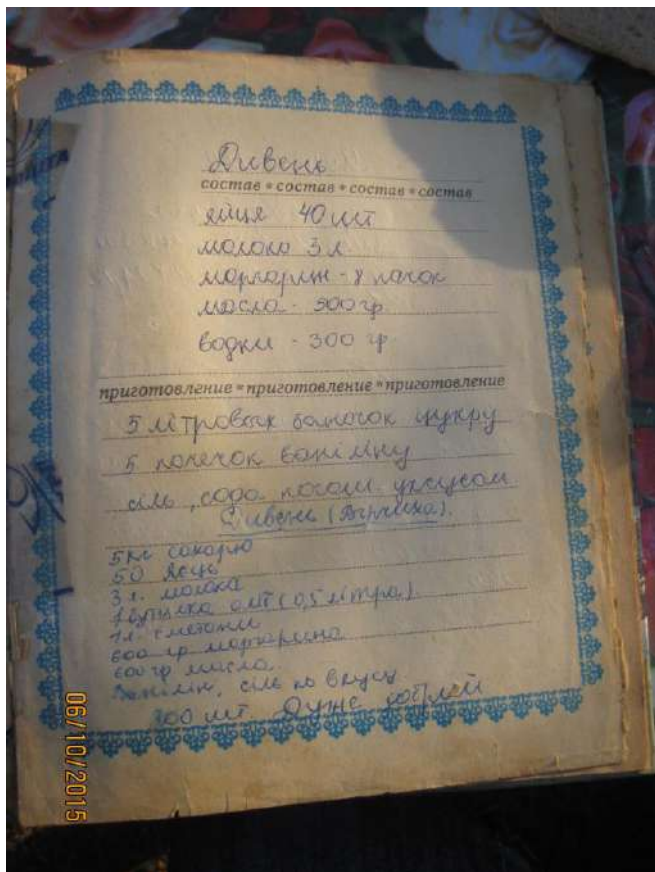 Дивень
состав * состав * состав * состав
яйця 40 шт
молоко 3 л
маргарин - 8 пачок
масла - 500 гр
водки - 300 гр.
приготовление * приготовление * приготовление
5 літрових баночок цукру
5 пачечок ваніліну
сіль, сода погаш. уксусом.
Дивень
5 кг сахарю
50 яєць
3 л. молока
1 бутилка олії (0,5 літра)
1 л. сметани
600 гр маргарина
600 гр масла.
Ванілін, сіль по вкусу
300 шт. Дуже добрий
06/10/2015